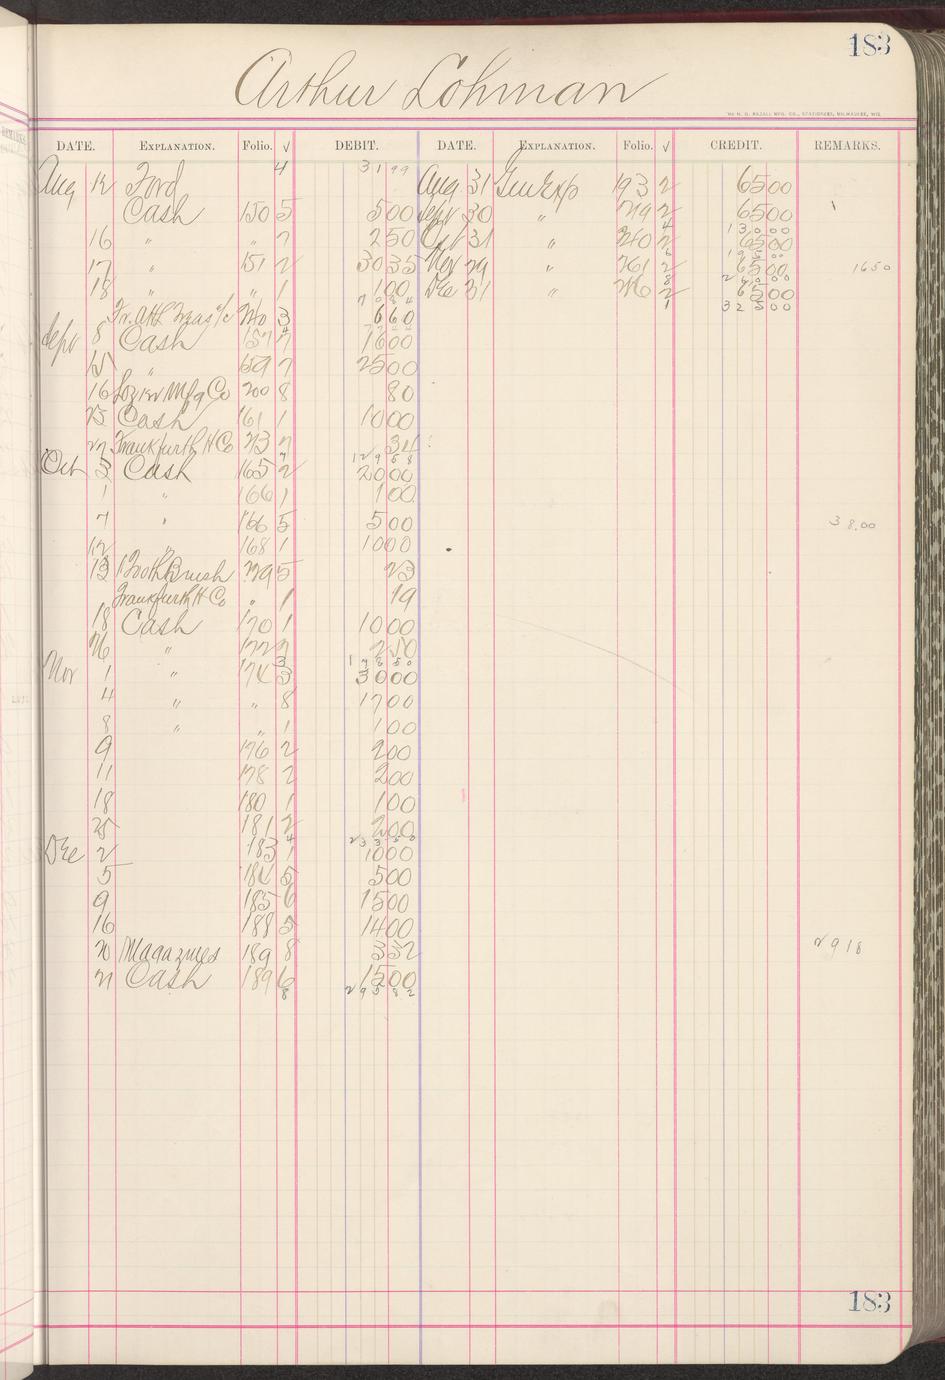 183
Arthur Lohman
DATE. EXPLANATION. Folio. √ DEBIT. DATE. EXPLANATION. Folio. √ CREDIT. REMARKS.
Aug 12 Ford 4 31 99 Aug 31 Gen Exp 193 2 6500
Cash 150 5 500 Sept 30 " 219 2 6500
16 " " 7 250 Oct 31 " 240 2 13000 6500
17 " 151 2 3035 Nov 29 " 261 2 19500 6500 1650
18 " " 1 100 Dec 31 " 2 26000 6500
7084 32500
240 3 660
Sept 8 Cash 157 7 1600
15 " 159 7 2500
16 Mfg Co 200 8 80
23 Cash 161 1 1000
27 Frankfurth H Co 213 7 34
12958
Oct 3 Cash 165 2 2000
1 " 166 1 100
7 " 166 5 500 38.00
12 " 168 1 1000
13 1 Tooth Brush 229 5 23
Frankfurth H Co " 1 19
18 Cash 170 1 1000
26 " 172 2 250
17850
Nov 1 " 174 3 3000
4 " " 8 1700
8 " " 1 100
9 176 2 200
11 178 2 200
18 180 1 100
25 181 2 200
23350
Dec 2 183 1 1000
5 184 5 500
9 185 6 1500
16 188 5 1400
20 Magazines 189 8 332 2918
21 Cash 189 6 1500
8 29582
183